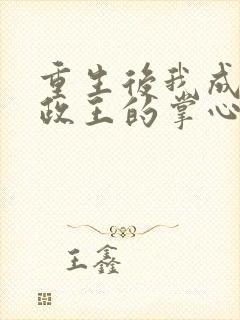 重生後我成
政王的掌心
王鑫